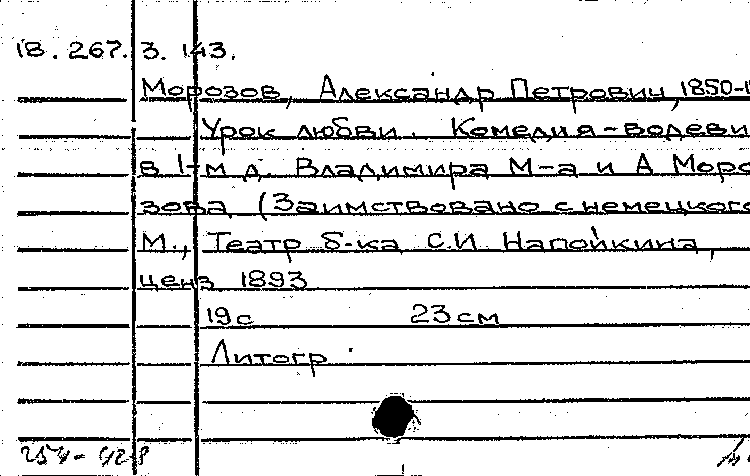 18.267.3.143.
Морозов, Александр Петрович, 1850-1
Урок любви. Комедия-водеви
в 1-м д. Владимира М-а и А Моро
зова (Заимствовано с немецкого
М., Театр б-ка С.И. Напойкина,
ценз 1893
19с 23см
Литогр
254-428